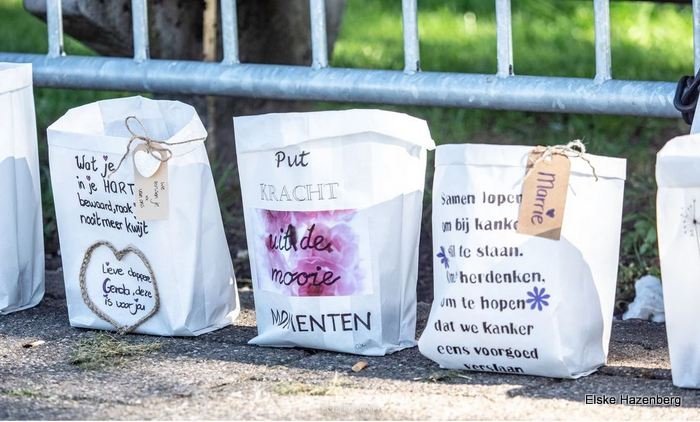 Wat je
in je HART
bewaard, raak
nooit meer kwijt
Lieve
Gerda, deze
is voor jou
Put
KRACHT
uit de
mooie
MOMENTEN
Marrie
Samen lopen
om bij kanker
stil te staan.
herdenken.
om te hopen
dat we kanker
eens voorgoed
verslaan
Elske Hazenberg